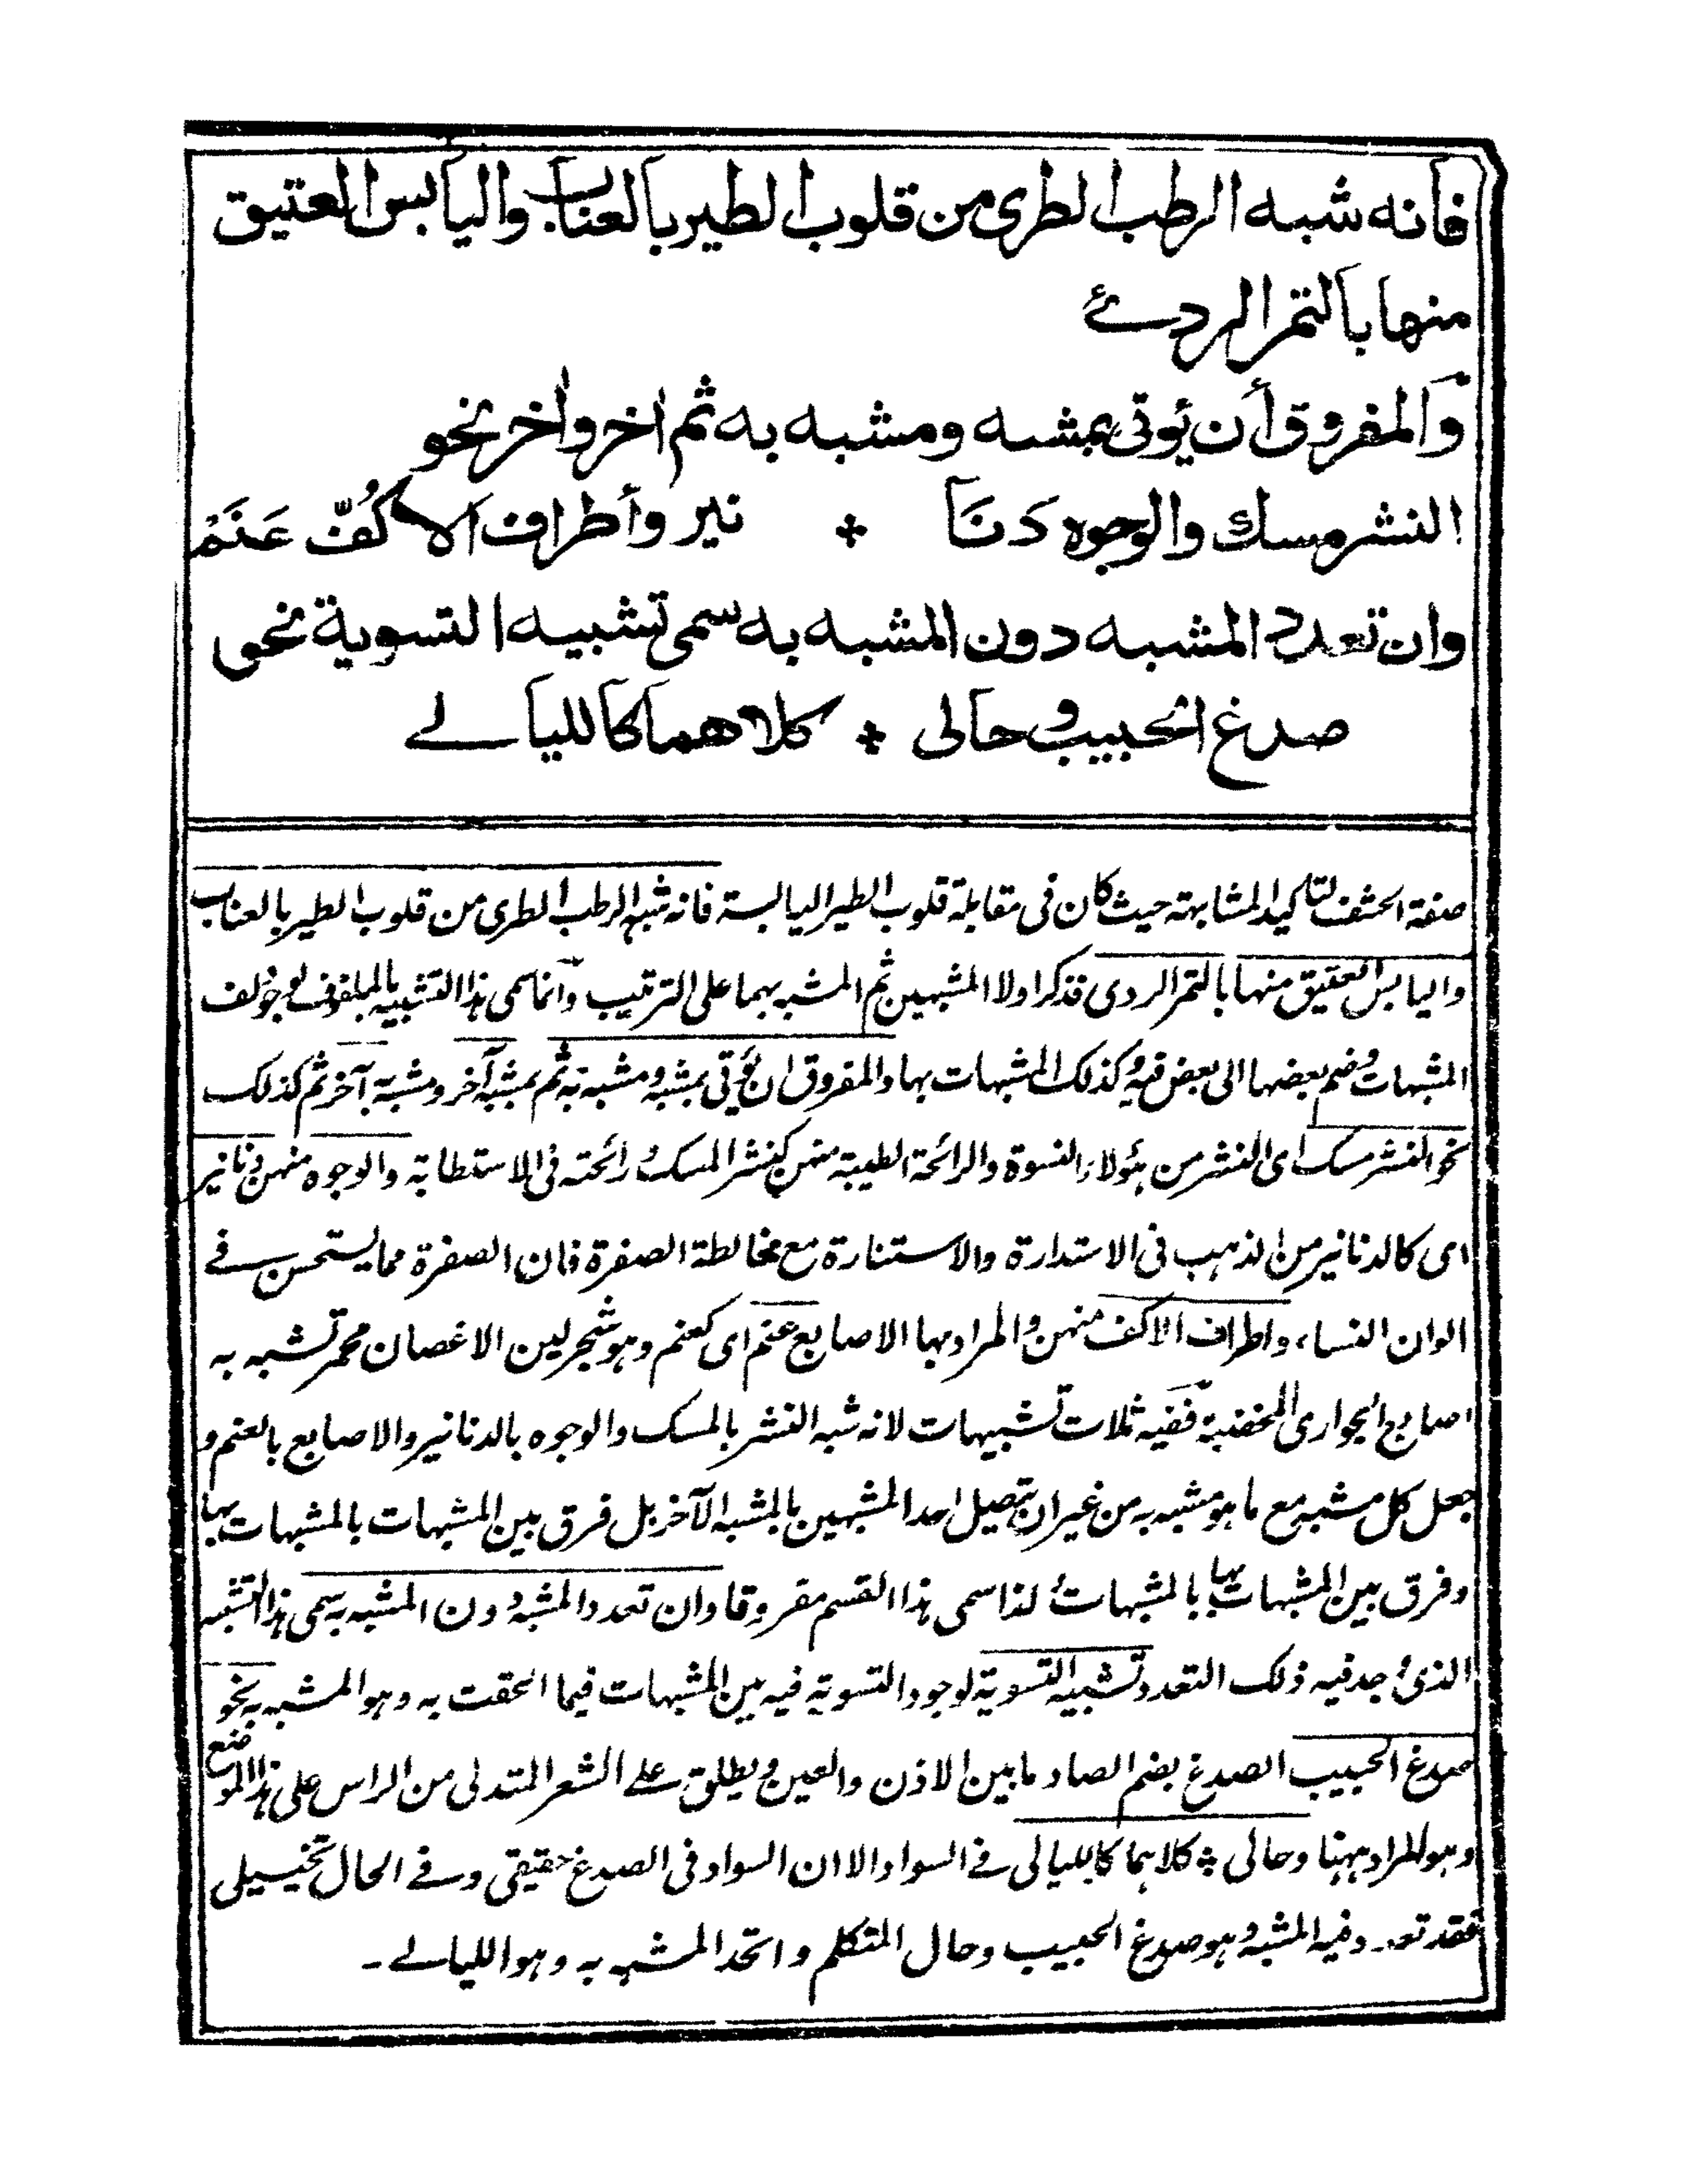 فانه شبه الرطب الطرى من قلوب الطير بالعناب واليابس العتيق
منها بالتمر الردئ
والمفروق أن يؤتى بمشبه ومشبه به ثم اخر واخر نحو
النشر مسك والوجوه دَنَا * نير وأطراف الاكُفّ عَنَمْ
وان تعدد المشبه دون المشبه به سمى تشبيه التسوية نحو
صدغ الحبيب وحالى * كلاهما كالليالے
صفة الحشف لتاكيد المشابهة حيث كان فى مقابلة قلوب الطير اليابسة فانه شبه الرطب الطرى من قلوب الطير بالعناب
واليابس العتيق منها بالتمر الردى فذكر اولا المشبهين ثم المشبه بهما على الترتيب وانما سمى هذا التشبيه بالملفوف لوجود لف
المشبهات وضم بعضها الى بعض فيه وكذلك المشبهات بها والمفروق ان يؤتى بمشبه ومشبه به ثم بمشبه آخر ومشبه به آخر ثم كذلك
نحو النشر مسك اى النشر من هؤلاء النسوة والرائحة الطيبة منهن كنشر المسك ورائحته فى الاستطابة والوجوه منهن دنانير
اى كالدنانير من الذهب فى الاستدارة والاستنارة مع مخالطة الصفرة فان الصفرة مما يستحسن فے
الوان النساء واطراف الاكف منهن والمراد بها الاصابع عنم اى كعنم وهو شجر لين الاغصان محمر تشبه به
اصابع الجوارى المخضبة ففيه ثلاث تشبيهات لانه شبه النشر بالمسك والوجوه بالدنانير والاصابع بالعنم و
جعل كل مشبه مع ما هو مشبه به من غير ان يتصل احد المشبهين بالمشبه الآخر بل فرق بين المشبهات بالمشبهات بها
وفرق بين المشبهات بها بالمشبهات لذا سمى هذا القسم مفروقا وان تعدد المشبه دون المشبه به سمى هذا التشبيه
الذى وجد فيه ذلك التعدد تشبيه التسوية لوجود التسوية فيه بين المشبهات فيما الحقت به وهو المشبه به نحو
صدغ الحبيب الصدغ بضم الصاد ما بين الاذن والعين ويطلق علے الشعر المتدلى من الراس على هذا الموضع
وهو المراد ههنا وحالى * كلاهما كالليالى فے السواد الا ان السواد فى الصدغ حقيقى وفے الحال تخييلى
فقد تعدد فيه المشبه وهو صدغ الحبيب وحال المتكلم واتحد المشبه به وهو الليالے -